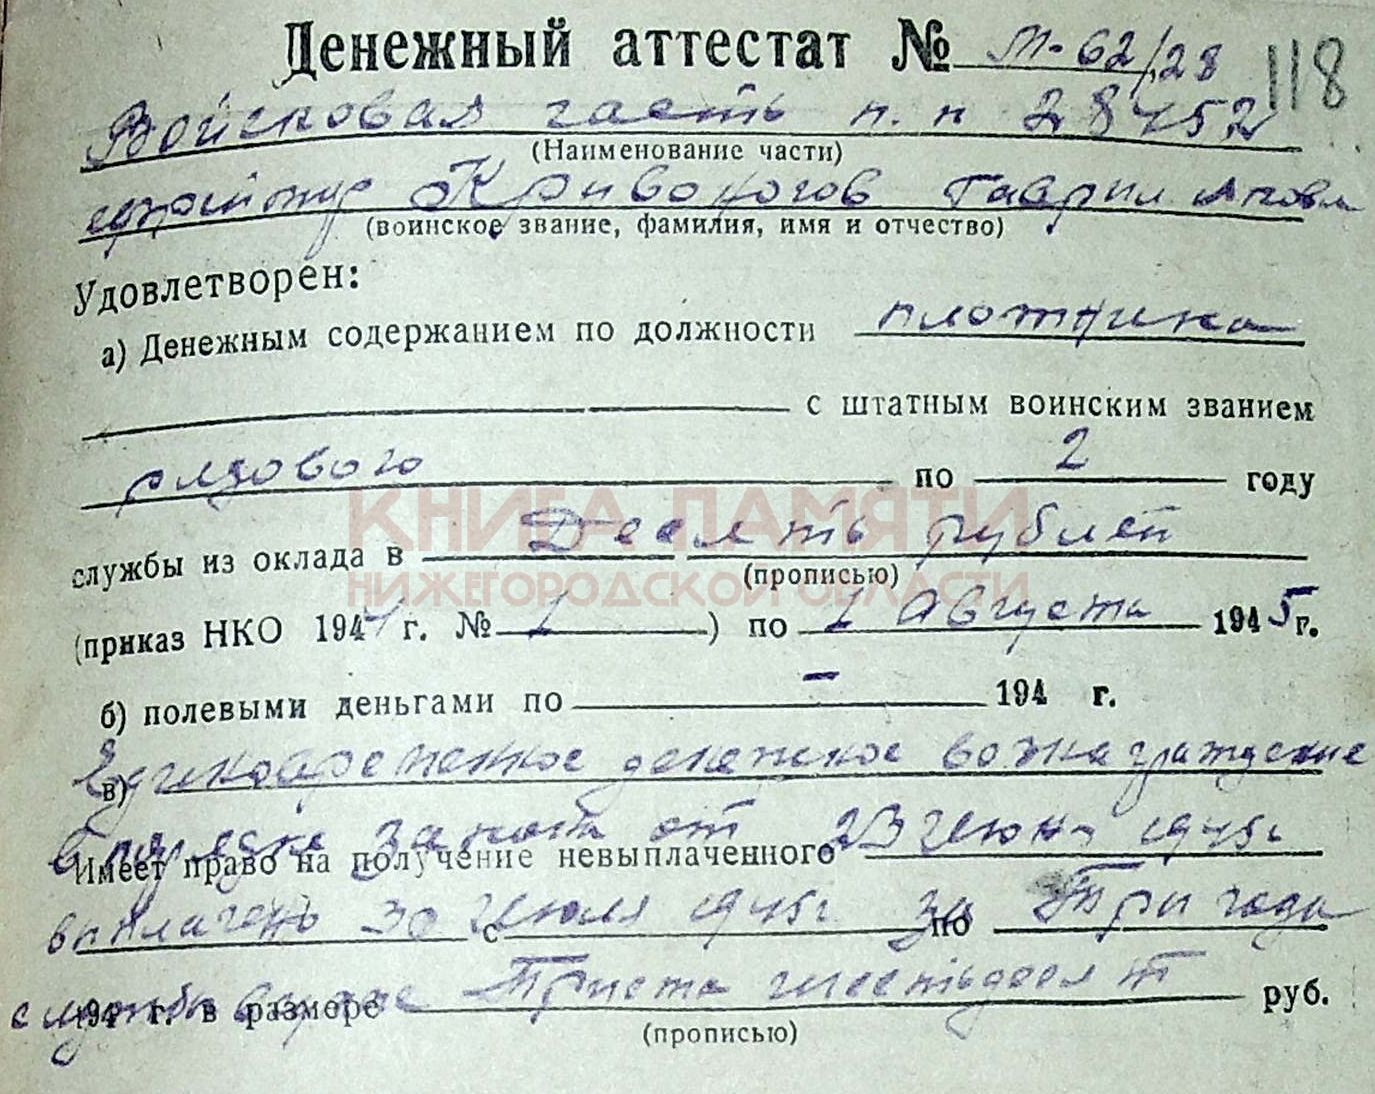 Денежный аттестат № М-62/28
118
Войсковая часть п.п 28452
(Наименование части)
ефрейтор Кривоногов Гаврил
(воинское звание, фамилия, имя и отчество)
Удовлетворен:
а) Денежным содержанием по должности плотника
с штатным воинским званием
рядового по 2 году
КНИГА ПАМЯТИ
службы из оклада в Десять рублей
(прописью)
НИЖЕГОРОДСКОЙ ОБЛАСТИ
(приказ НКО 1944 г. № 1 ) по 1 Августа 1945 г.
б) полевыми деньгами по — 194 г.
в) Единовременное денежное вознаграждение
закона от 23 июня 1945г
Имеет право на получение невыплаченного
выплачено 30 июля 1945г за Три года
с по
службы Триста шестьдесят руб.
194 г. в размере
(прописью)